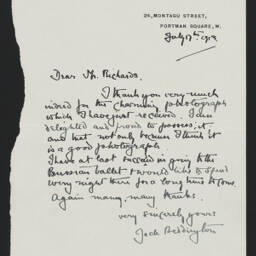 26, MONTAGU STREET,
PORTMAN SQUARE, W.
July 17th 1913
Dear Mr. Richards.
I thank you very much
indeed for the charming photograph
which I have just received. I am
delighted and proud to possess it
and not only because I think it
is a good photograph
I have at last succeeded in going to the
Russian ballet & would like to spend
every night there for a long time to come.
Again many, many thanks.
very sincerely yours
Jack Beddington